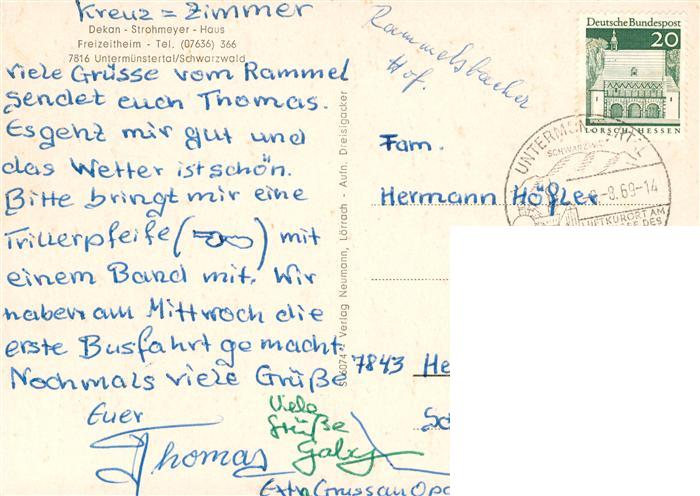 Kreuz = Zimmer
Dekan - Strohmeyer - Haus
Freizeitheim - Tel. (07636) 366
7816 Untermünstertal/Schwarzwald
viele Grüsse vom Rammel
sendet euch Thomas.
Es geht mir gut und
das Wetter ist schön.
Bitte bringt mir eine
Trillerpfeife ( ) mit
einem Band mit. Wir
haben am Mittwoch die
erste Busfahrt gemacht.
Nochmals viele Grüße
Euer
Thomas
Viele
Grüße
Gaby
Extra Gruss an Opa
Verlag Neumann, Lörrach - Aufn. Dreisigacker
Rammelsbacher
Hof.
Deutsche Bundespost
20
LORSCH/HESSEN
UNTERMÜNSTERTAL
SCHWARZW
-8.69-14
LUFTKURORT AM
Fam.
Hermann Häßler
7843 He
Sc